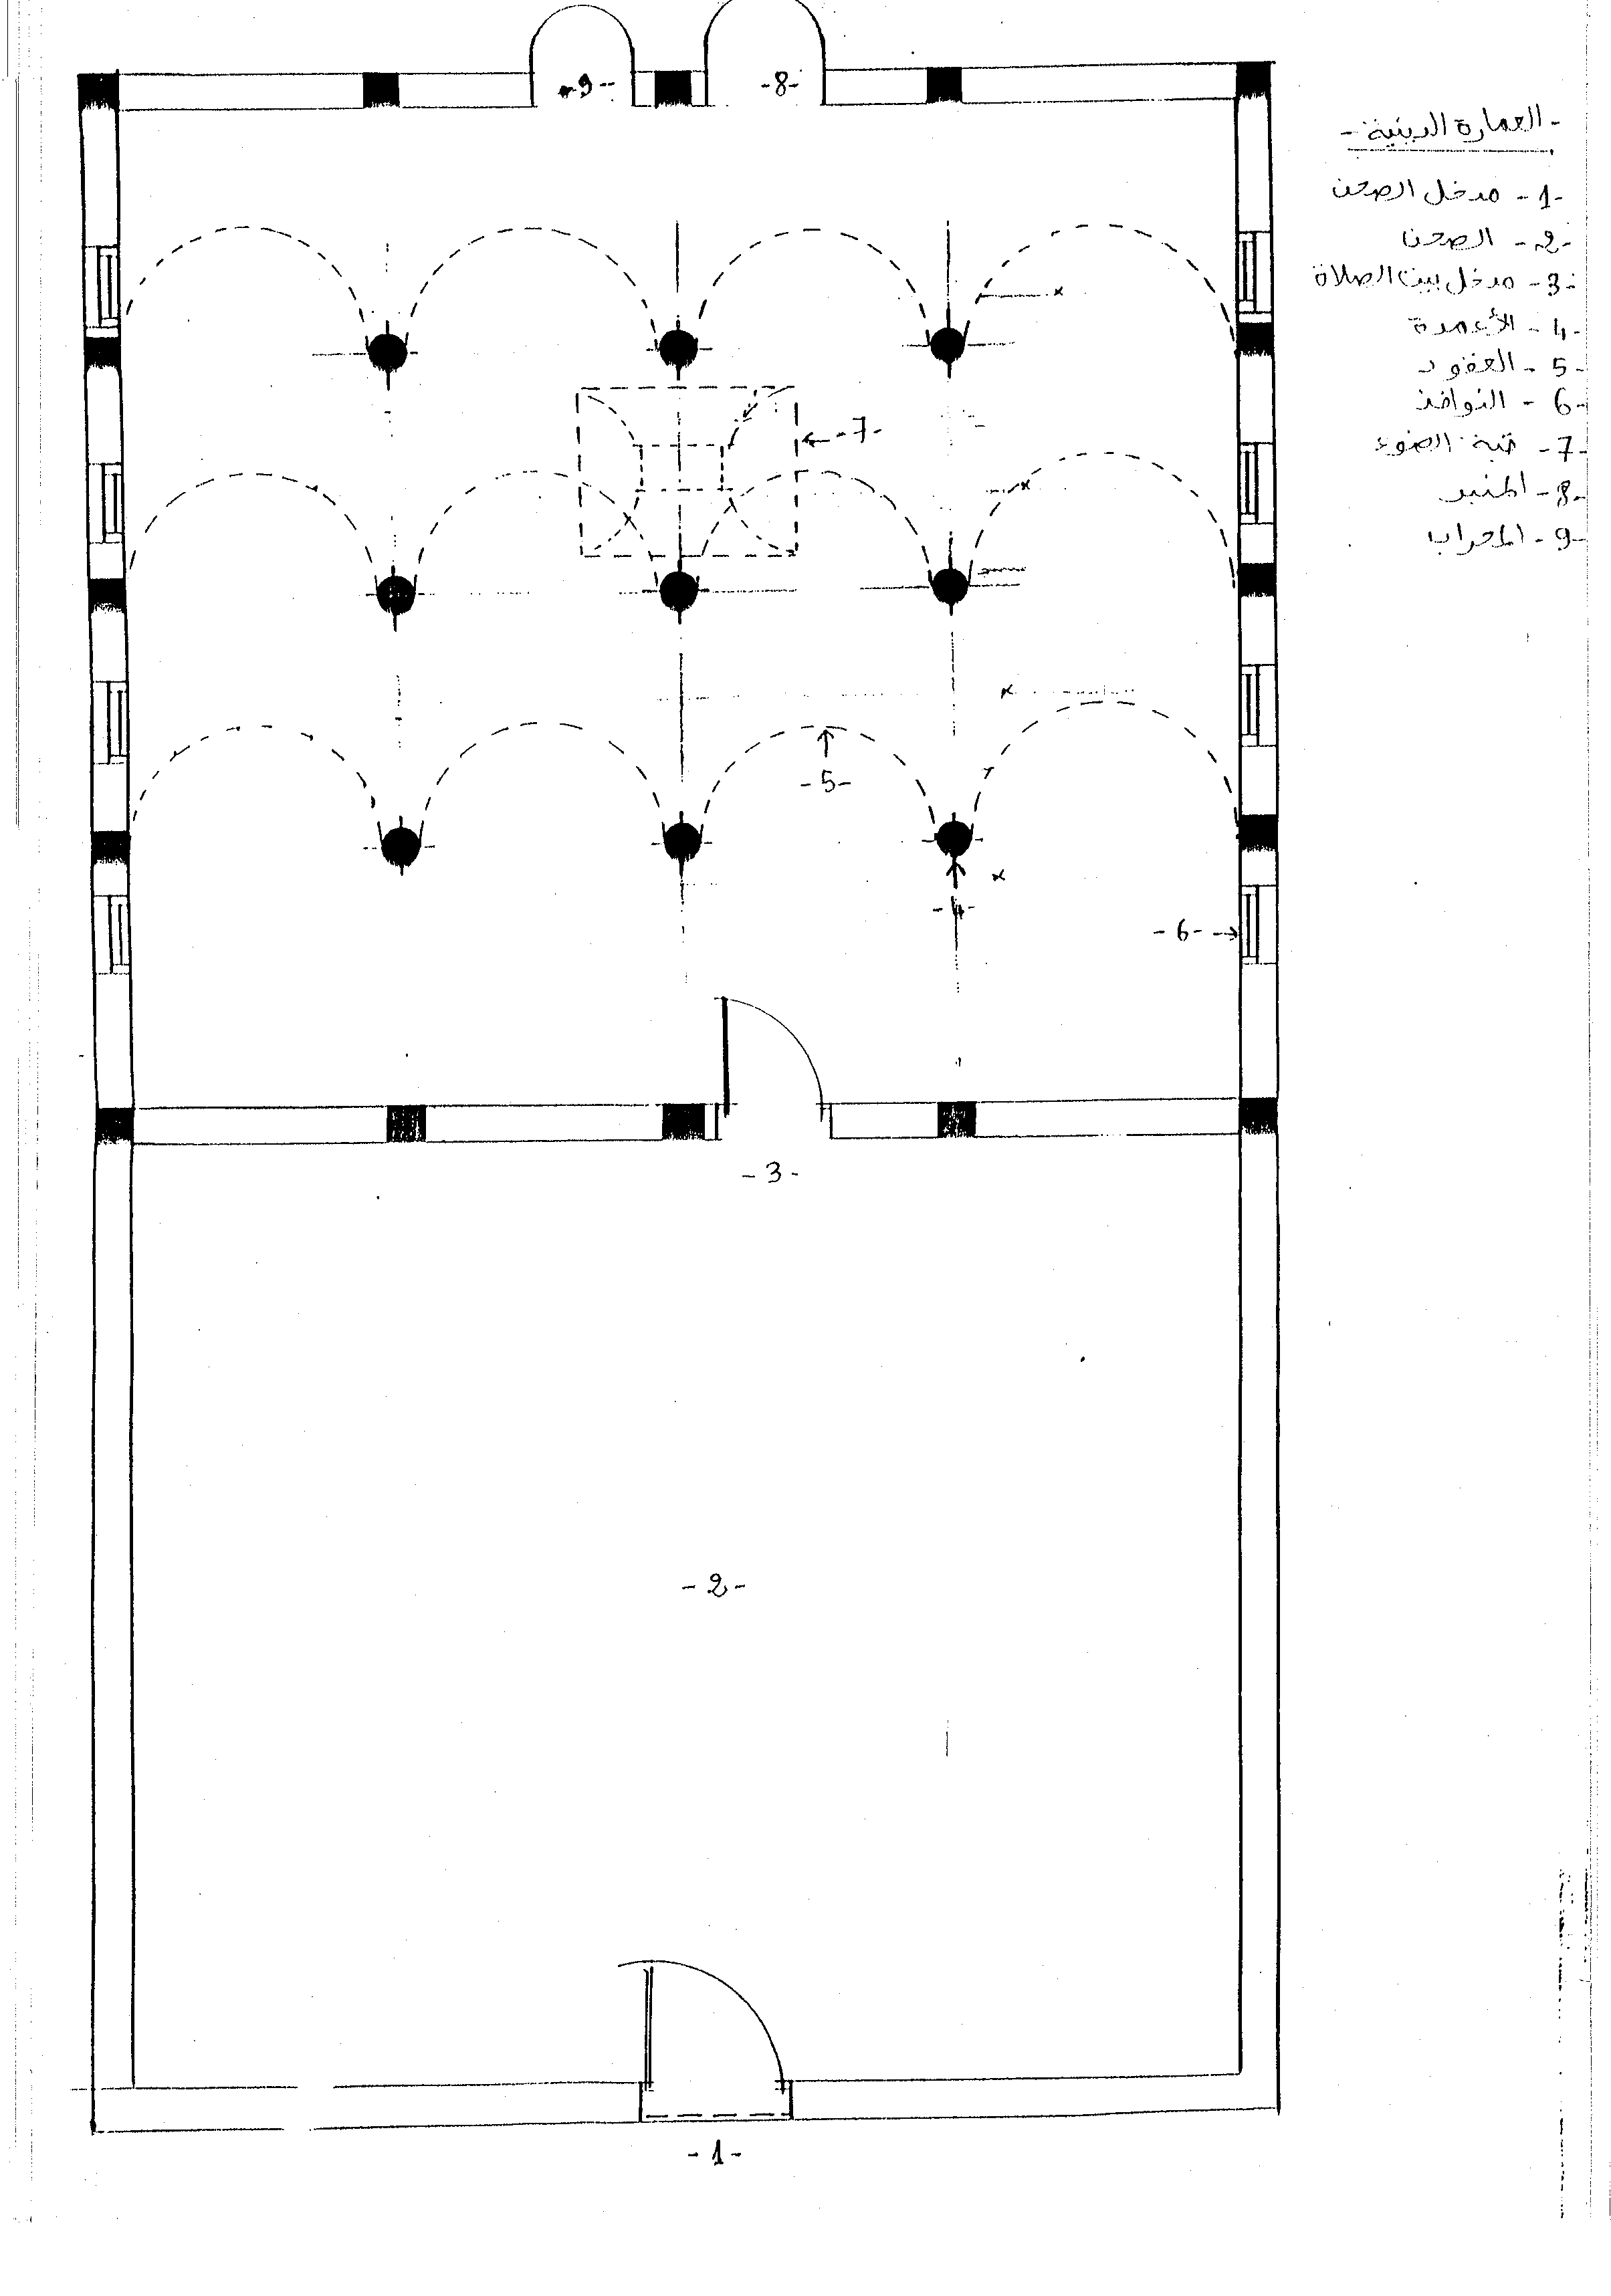 - العمارة الدينية -
-1- مدخل الصحن
-2- الصحن
-3- مدخل بيت الصلاة
-4- الأعمدة
-5- العقود
-6- النوافذ
-7- قبة الضوء
-8- المنبر
-9- المحراب
-9-
-8-
-7-
-5-
-4-
-6-
-3-
-2-
-1-